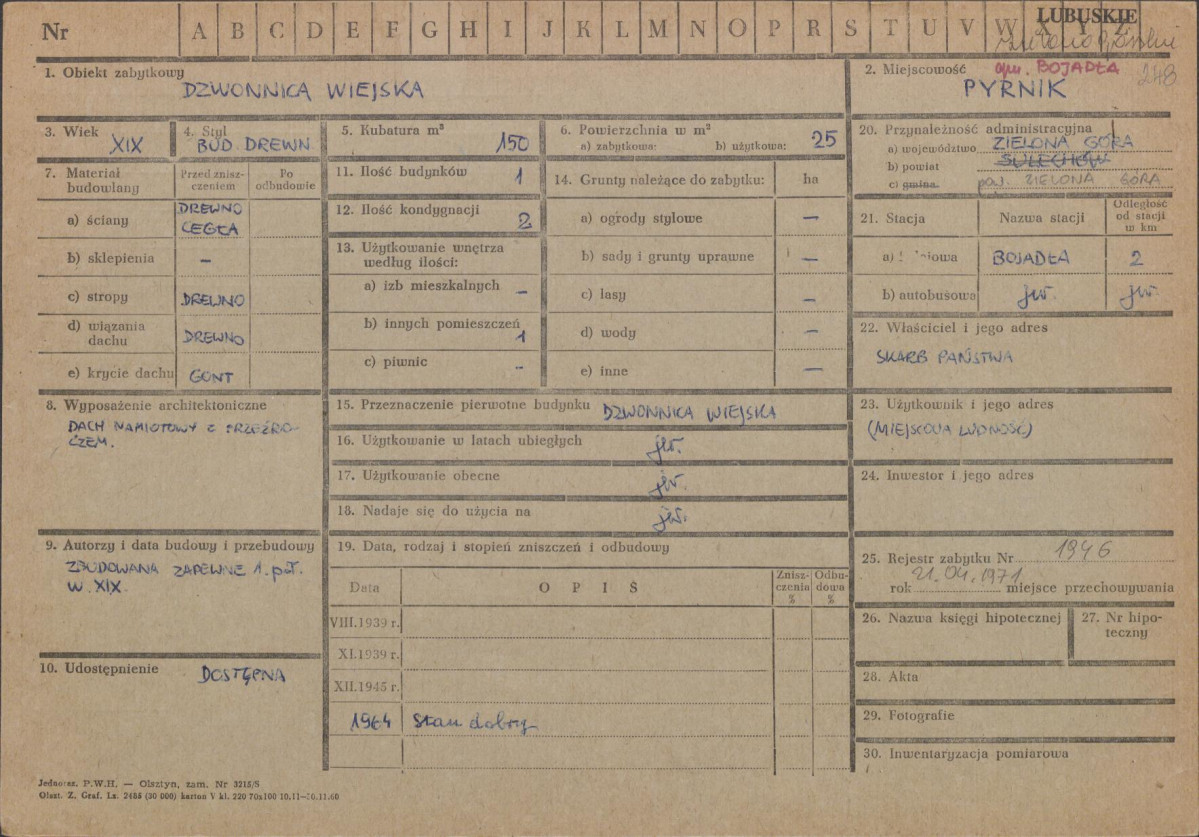 Nr A B C D E F G H I J K L M N O P R S T U V W X Y Z
LUBUSKIE
1. Obiekt zabytkowy
DZWONNICA WIEJSKA
2. Miejscowość gm. BOJADŁA 248
PYRNIK
3. Wiek
XIX
4. Styl
BUD. DREWN.
5. Kubatura m³
150
6. Powierzchnia w m²
a) zabytkowa: b) użytkowa: 25
20. Przynależność administracyjna
a) województwo ZIELONA GÓRA
b) powiat SULECHÓW
c) gmina. pow. ZIELONA GÓRA
7. Materiał budowlany
Przed znisz-
czeniem
Po
odbudowie
a) ściany DREWNO
CEGŁA
b) sklepienia —
c) stropy DREWNO
d) wiązania
dachu DREWNO
e) krycie dachu GONT
11. Ilość budynków 1
12. Ilość kondygnacji 2
13. Użytkowanie wnętrza
według ilości:
a) izb mieszkalnych —
b) innych pomieszczeń
1
c) piwnic -
14. Grunty należące do zabytku: ha
a) ogrody stylowe —
b) sady i grunty uprawne —
c) lasy —
d) wody —
e) inne —
21. Stacja Nazwa stacji Odległość
od stacji
w km
a) BOJADŁA 2
b) autobusowa jw. jw.
22. Właściciel i jego adres
SKARB PAŃSTWA
8. Wyposażenie architektoniczne
DACH NAMIOTOWY Z PRZEŹRO-
CZEM.
15. Przeznaczenie pierwotne budynku DZWONNICA WIEJSKA
16. Użytkowanie w latach ubiegłych jw.
17. Użytkowanie obecne jw.
18. Nadaje się do użycia na jw.
23. Użytkownik i jego adres
(MIEJSCOWA LUDNOŚĆ)
24. Inwestor i jego adres
9. Autorzy i data budowy i przebudowy
ZBUDOWANA ZAPEWNE 1. poł.
W. XIX.
19. Data, rodzaj i stopień zniszczeń i odbudowy
Data O P I S Znisz-
czenia
% Odbu-
dowa
%
VIII.1939 r.
XI.1939 r.
XII.1945 r.
1964 Stan dobry
25. Rejestr zabytku Nr 1946
rok 21.04.1971 miejsce przechowywania
26. Nazwa księgi hipotecznej
27. Nr hipo-
teczny
10. Udostępnienie DOSTĘPNA
28. Akta
29. Fotografie
30. Inwentaryzacja pomiarowa
Jednorz. P.W.H. — Olsztyn, zam. Nr 3215/S
Olszt. Z. Graf. Lz. 2485 (30 000) karton V kl. 220 70x100 10.11—30.11.60